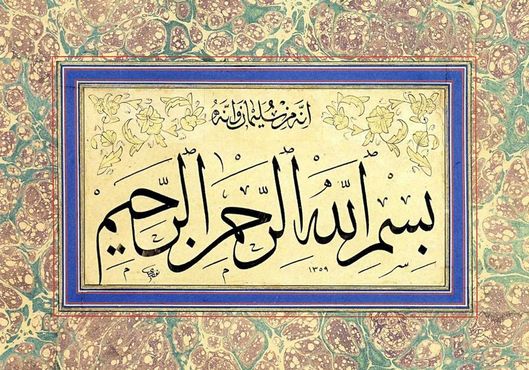 انه من سليمان وانه
بسم الله الرحمن الرحيم
١٣٥٩